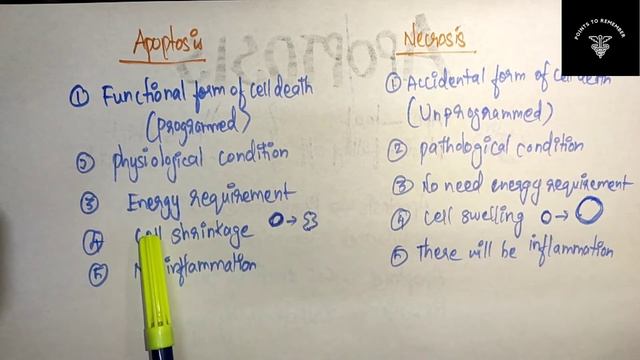 Apoptosis
① Functional form of cell death
(programmed)
② physiological condition
③ Energy requirement
④ Cell shrinkage
⑤ No inflammation
Necrosis
① Accidental form of cell death
(Unprogrammed)
② pathological condition
③ No need energy requirement
④ cell swelling
⑤ There will be inflammation
POINTS TO REMEMBER